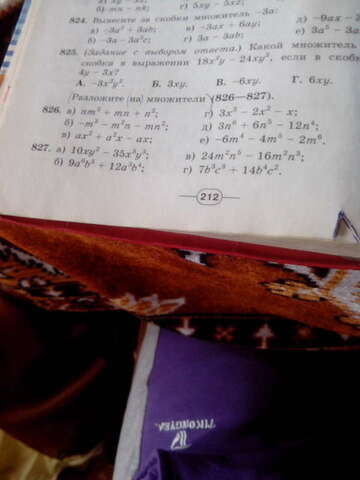 824. Вынесите за скобки множитель -3а:
а) -3a² + 3ab;
в) -3ax + 6ay;
б) -3a - 3a²c;
г) 3a - 3ab;
825. (Задание с выбором ответа.) Какой множитель
скобки в выражении 18x²y - 24xy², если в скоб
4y - 3x?
А. -3x²y
Б. 3xy.
В. -6xy.
Г. 6xy.
Разложите на множители (826—827).
826. а)
г) 3x³ - 2x² - x;
б) -m² - m²n - mn²;
д) 3n⁶ + 6n⁵ - 12n⁴;
в) ax² + a²x - ax;
е) -6m⁴ - 4m⁵ - 2m⁶.
827. а) 10xy² - 35x³y³;
в) 24m²n⁵ - 16m²n³;
б) 9a⁶b³ + 12a³b⁴;
г) 7b³c³ + 14b⁴c².
212